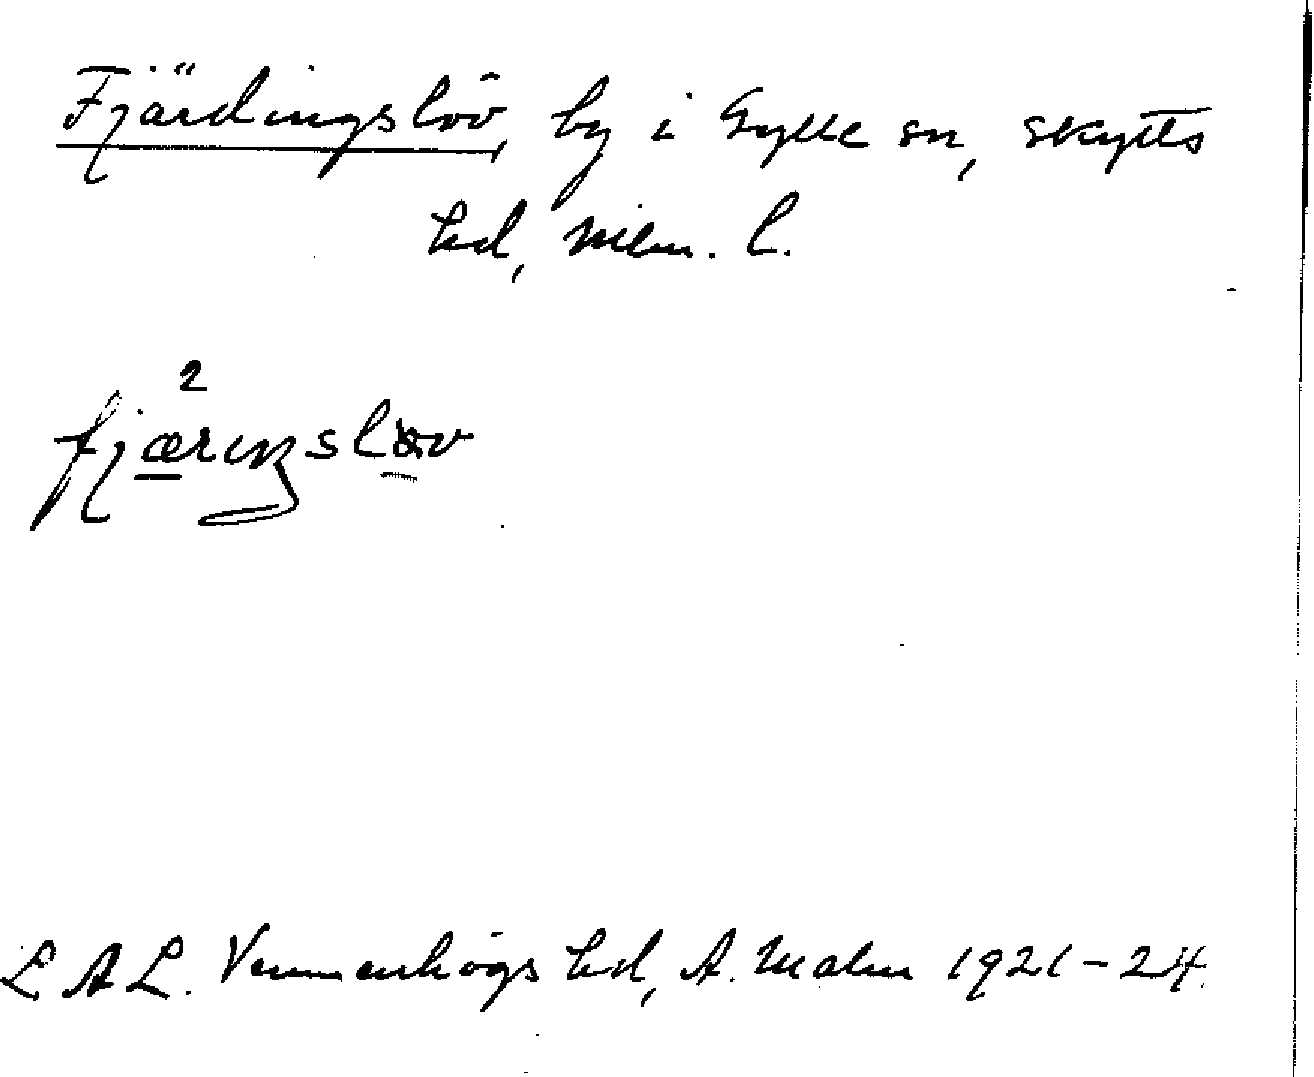 Fjärdingslöv, by i Gylle sn, Skytts
hd, Mlm. l.
2
fjæriŋslöv
L A L. Vemmenhögs hd, A. Malm 1921-24.